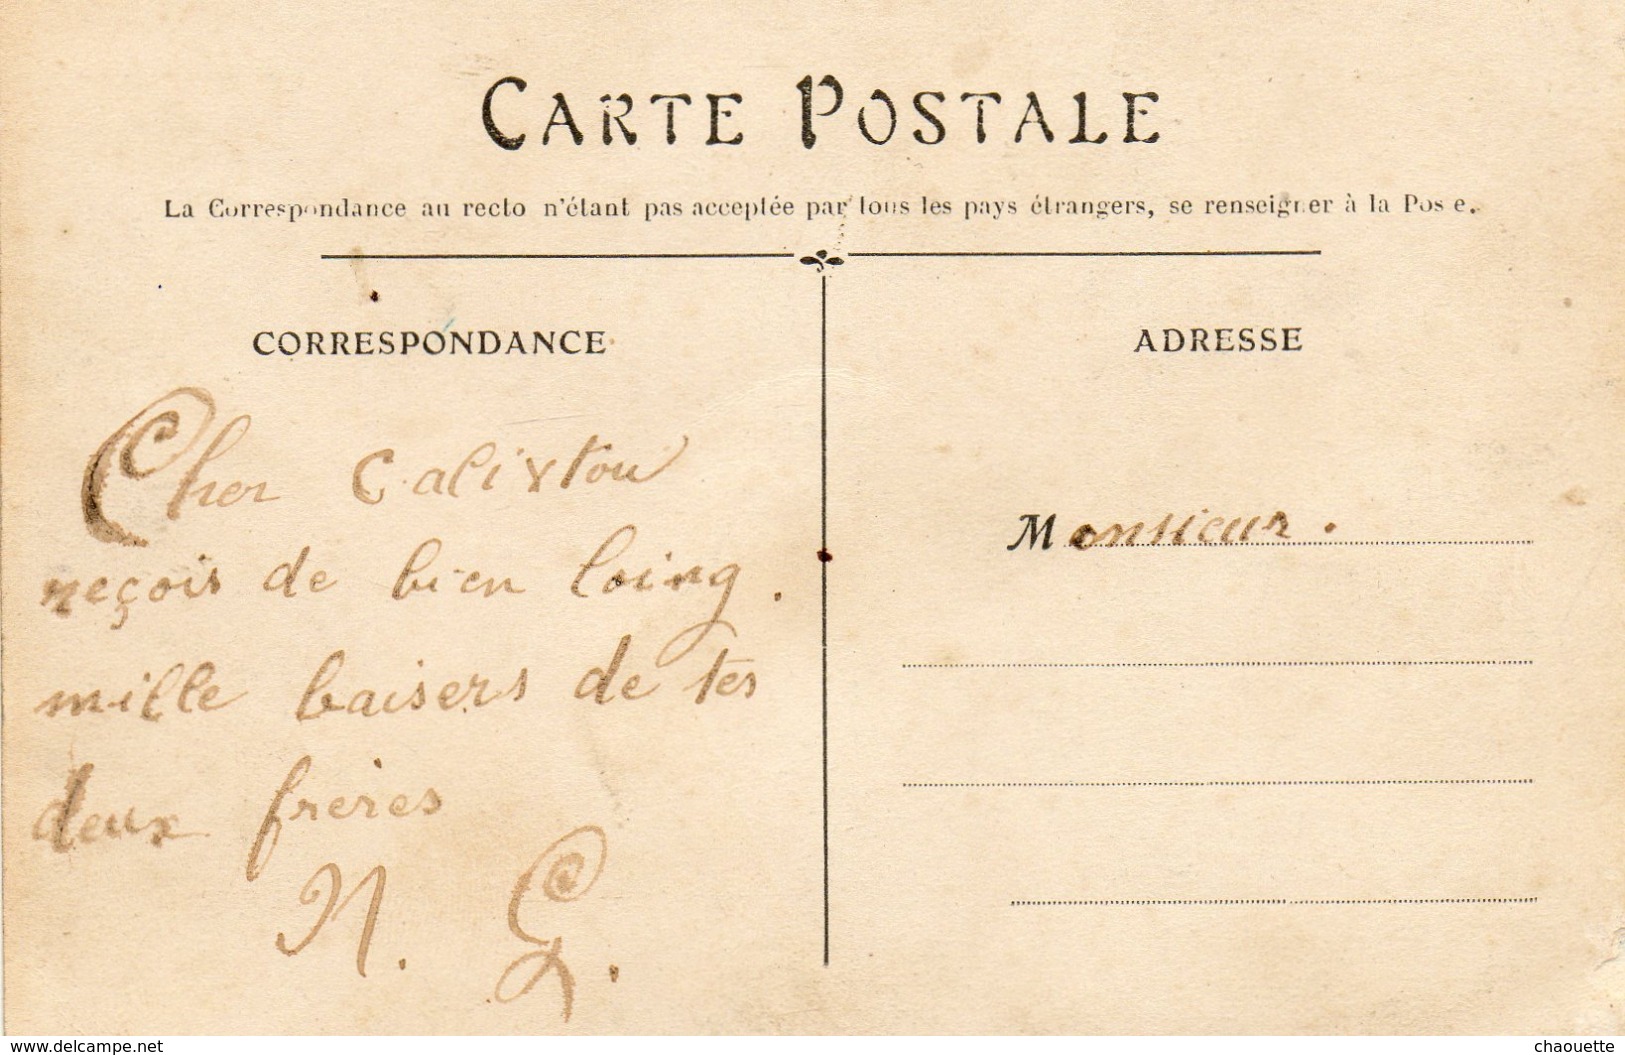 CARTE POSTALE
La Correspondance au recto n'étant pas acceptée par tous les pays étrangers, se renseigner à la Pos e.
CORRESPONDANCE
ADRESSE
Cher Calixtou
reçois de bien loing.
mille baisers de tes
deux frères
N. G.
Monsieur.
www.delcampe.net
chaouette